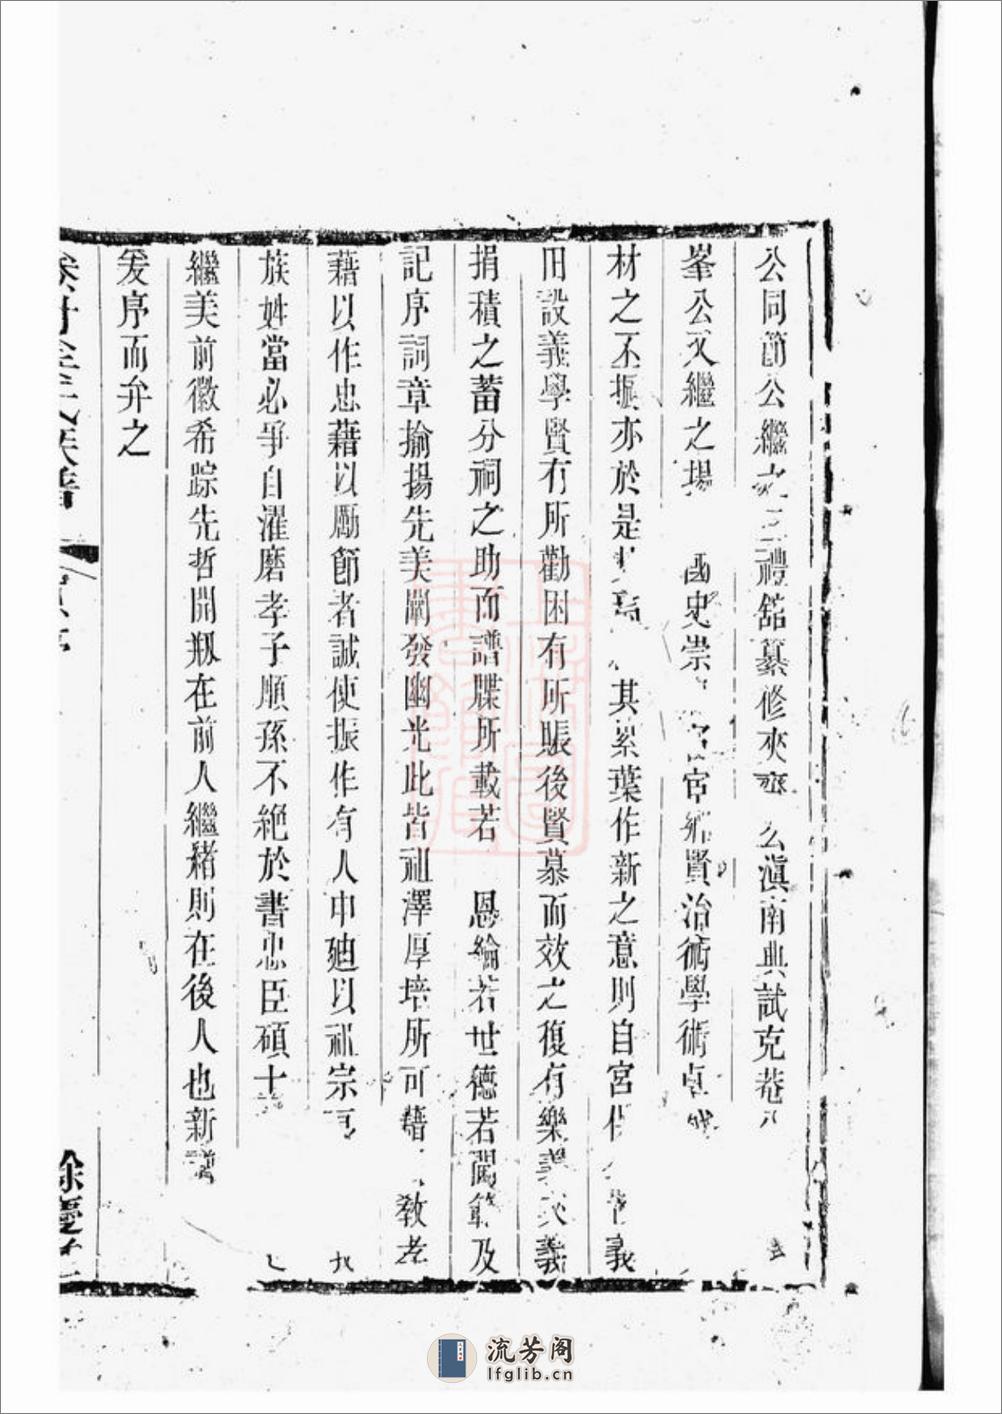 公同節公繼之三禮舘纂修夾齋公滇南典試克菴
峯公又繼之場國史崇宦鄉賢治術學術卓
材之丕振亦於是其累葉作新之意則自宮義
田設義學賢有所勸困有所賬後賢慕而效之復有樂義
捐積之蓄分祠之助而譜牒所載若恩綸若世德若閫範及
記序詞章揄揚先美闡發幽光此皆祖澤厚培所可藉教孝
藉以作忠藉以勵節者誠使振作有人申廸以祖宗
族姓當必爭自濯磨孝子順孫不絕於書忠臣碩士
繼美前徽希踪先哲開刱在前人繼緒則在後人也新譜
爰序而弁之
氏族譜
餘慶
流芳阁
lfglib.cn